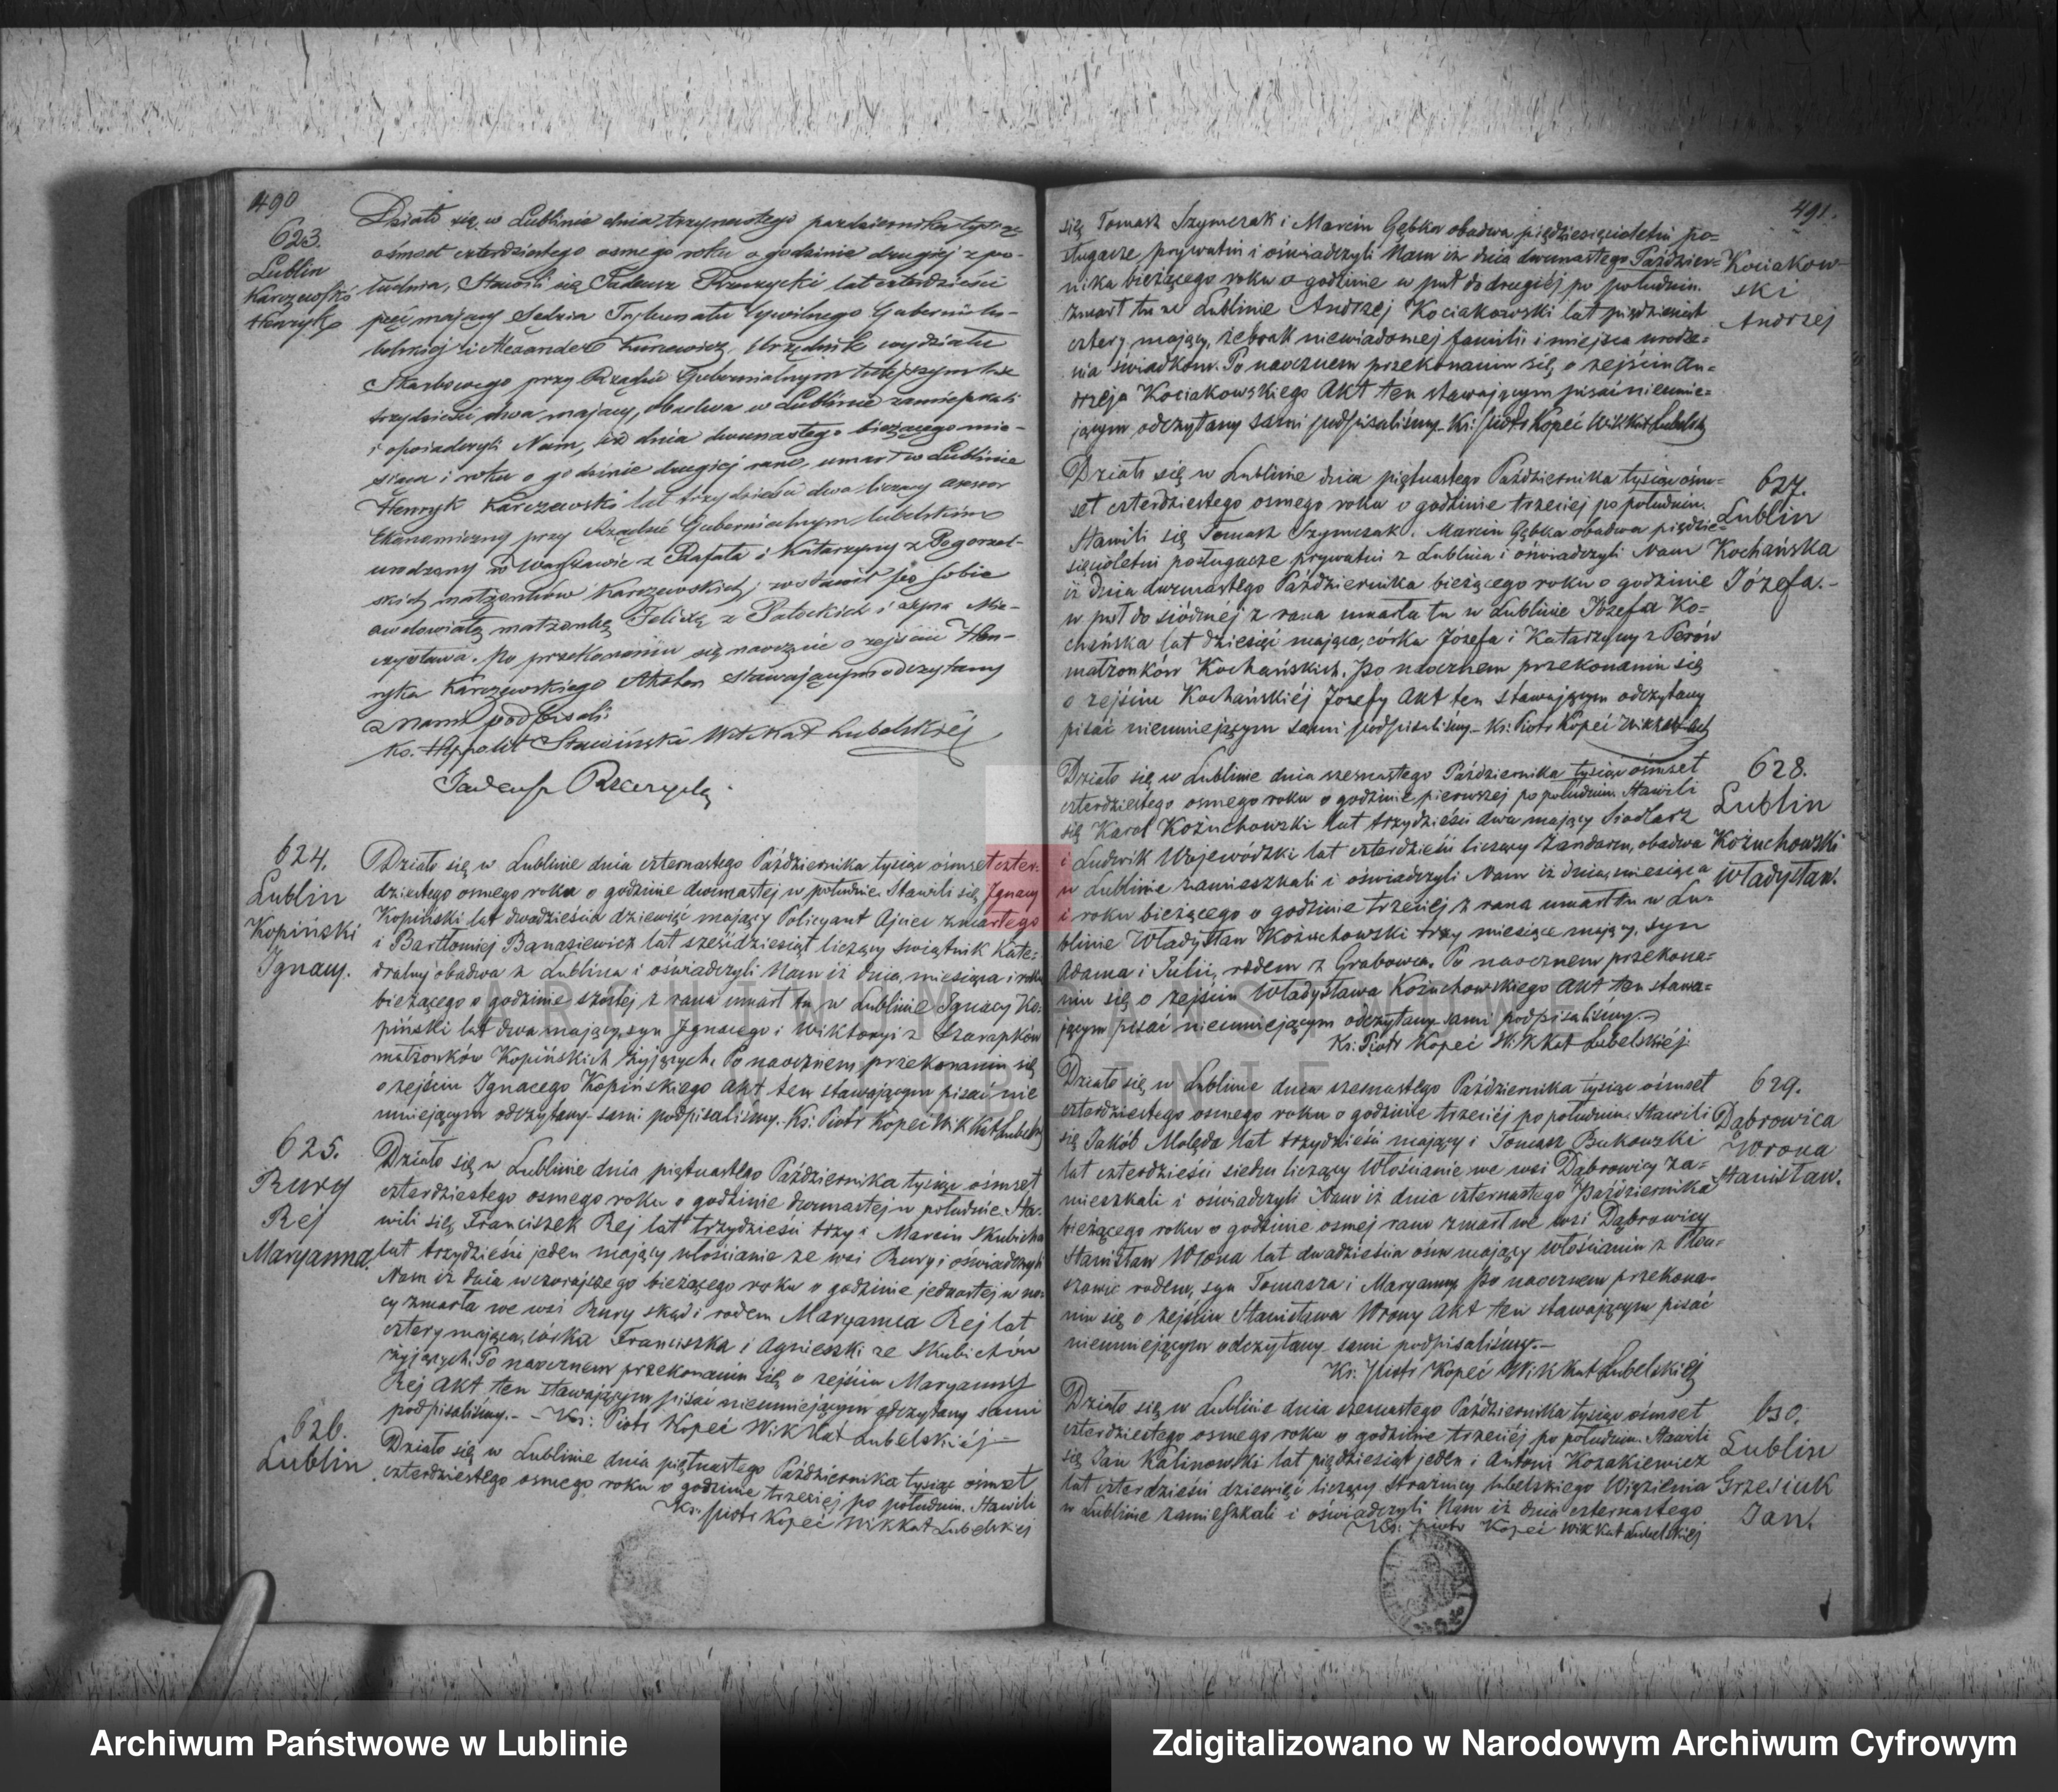 490
623.
Lublin
Karczewski
Henryk
Działo się w Lublinie dnia trzynastego pazdziernika tysiąc
ośmset czterdziestego osmego roku o godzinie drugiej z po-
łudnia, Stawili się Tadeusz lat czterdzieści
pięć mający Sędzia Trybunału Cywilnego Gubernii Lu-
belskiej i Alexander Kunewicz Urzędnik wydziału
Skarbowego przy Rządzie Gubernialnym tutejszym lat
trzydzieści dwa mający, obadwa w Lublinie zamieszkali
i oświadczyli Nam, iż dnia dwunastego bieżącego mie-
siąca i roku o godzinie drugiej rano, umarł w Lublinie
Henryk Karczewski lat trzydzieści dwa liczący assesor
Ekonomiczny przy Rządzie Gubernialnym lubelskim
urodzony w Warszawie z Rafała i Katarzyny z Pogorzel-
skich małżonków Karczewskich, zostawił po sobie
owdowiałą małżonkę Felixę z Potockich i syna Mie-
czysława. Po przekonaniu się naocznie o zejściu Hen-
ryka Karczewskiego Akt ten stawającym odczytany
z nami podpisali
Ks. Hyppolit Stawiński Wik Kat Lubelskiej
Tadeusz
624.
Lublin
Kopiński
Ignacy.
Działo się w Lublinie dnia czternastego Października tysiąc ośmset czter-
dziestego osmego roku o godzinie dwunastej w południe. Stawili się Ignacy
Kopiński lat dwadzieścia dziewięć mający Policyant Ojciec zmarłego
i Bartłomiej Banasiewicz lat sześćdziesiąt liczący świątnik Kate-
dralny obadwa z Lublina i oświadczyli Nam iż dnia, miesiąca i roku
bieżącego o godzinie szóstej z rana umarł tu w Lublinie Ignacy Ko-
piński lat dwa mający, syn Ignacego i Wiktoryi z Szarapków
małżonków Kopińskich żyjących. Po naocznem przekonaniu się
o zejściu Ignacego Kopińskiego Akt ten stawającym pisać nie
umiejącym odczytany sami podpisaliśmy. Ks: Piotr Kopeć Wik Kat Lubels
625.
Rury
Rej
Maryanna
Działo się w Lublinie dnia piętnastego Października tysiąc ośmset
czterdziestego osmego roku o godzinie dwunastej w południe. Sta-
wili się Franciszek Rej lat trzydzieści trzy i Marcin Skubicha
lat trzydzieści jeden mający włościanie ze wsi Rury i oświadczyli
Nam iż dnia wczorajszego bieżącego roku o godzinie jedenastej w no-
cy zmarła we wsi Rury skąd i rodem Maryanna Rej lat
cztery mająca, córka Franciszka i Agnieszki ze Skubichów
żyjących. Po naocznem przekonaniu się o zejściu Maryanny
Rej Akt ten stawającym pisać nieumiejącym odczytany sami
podpisaliśmy. - Ks: Piotr Kopeć Wik Kat Lubelskiéj
626.
Lublin
Działo się w Lublinie dnia piętnastego Października tysiąc ośmset
czterdziestego osmego roku o godzinie trzeciej po południu. Stawili
Ks. Piotr Kopeć Wik Kat Lubelskiej
491.
się Tomasz Szymczak i Marcin Gębka obadwa pięćdziesięcioletni po-
sługacze prywatni i oświadczyli Nam iż dnia dwunastego Paździer-
nika bieżącego roku o godzinie w puł do drugiéj po południu.
zmarł tu w Lublinie Andrzej Kociakowski lat pięćdziesiąt
cztery mający, żebrak niewiadomej familii i miejsca urodze-
nia świadkom. Po naocznem przekonaniu się o zejściu An-
drzeja Kociakowskiego Akt ten stawającym pisać nieumie-
jącym odczytany sami podpisaliśmy. Ks: Piotr Kopeć Wik Kat Lubelsk
Kociakow-
ski
Andrzej
Działo się w Lublinie dnia piętnastego Października tysiąc ośm-
set czterdziestego osmego roku o godzinie trzeciej po południu.
Stawili się Tomasz Szymczak i Marcin Gębka obadwa pięćdzie-
sięcioletni posługacze prywatni z Lublina i oświadczyli Nam
iż dnia dwunastego Października bieżącego roku o godzinie
w puł do siódméj z rana umarła tu w Lublinie Józefa Ko-
chańska lat dziesięć mająca, córka Józefa i Katarzyny z Perów
małżonków Kochańskich. Po naocznem przekonaniu się
o zejściu Kochańskiéj Józefy Akt ten stawającym odczytany
pisać nieumiejącym sami podpisaliśmy. Ks: Piotr Kopeć Wik Kat Lub
627.
Lublin
Kochańska
Józefa.
Działo się w Lublinie dnia szesnastego Października tysiąc ośmset
czterdziestego osmego roku o godzinie pierwszej po południu. Stawili
się Karol Kożuchowski lat trzydzieści dwa mający Siodlarz
i Ludwik Wojewódzki lat czterdzieści liczący Żandarm, obadwa
w Lublinie zamieszkali i oświadczyli Nam iż dnia, miesiąca
i roku bieżącego o godzinie trzeciéj z rana umarł tu w Lu-
blinie Władysław Kożuchowski trzy miesiące mający, syn
Adama i Julii, rodem z Grabowca. Po naocznem przekona-
niu się o zejściu Władysława Kożuchowskiego Akt ten stawa-
jącym pisać nieumiejącym odczytany sami podpisaliśmy.
Ks: Piotr Kopeć Wik Kat Lubelskiéj
628.
Lublin
Kożuchowski
Władysław.
Działo się w Lublinie dnia szesnastego Października tysiąc ośmset
czterdziestego osmego roku o godzinie trzeciéj po południu. Stawili
się Jakób Molęda lat trzydzieści mający i Tomasz Bukowski
lat czterdzieści siedm liczący Włościanie we wsi Dąbrowicy za-
mieszkali i oświadczyli Nam iż dnia czternastego Października
bieżącego roku o godzinie osmej rano zmarł we wsi Dąbrowicy
Stanisław Wrona lat dwadzieścia ośm mający włościanin z Plou-
szowic rodem, syn Tomasza i Maryanny. Po naocznem przekona-
niu się o zejściu Stanisława Wrony Akt ten stawającym pisać
nieumiejącym odczytany sami podpisaliśmy.
Ks. Piotr Kopeć Wik Kat Lubelskiéj
629.
Dąbrowica
Wrona
Stanisław.
Działo się w Lublinie dnia szesnastego Października tysiąc ośmset
czterdziestego osmego roku o godzinie trzeciéj po południu. Stawili
się Jan Kalinowski lat pięćdziesiąt jeden i Antoni Kozakiewicz
lat czterdzieści dziewięć liczący Strażnicy lubelskiego Więzienia
w Lublinie zamieszkali i oświadczyli Nam iż dnia czternastego
Ks: Piotr Kopeć Wik Kat Lubelskiej
630.
Lublin
Grzesiuk
Jan.
ARCHIWUM PAŃSTWOWE
W LUBLINIE
Archiwum Państwowe w Lublinie
Zdigitalizowano w Narodowym Archiwum Cyfrowym